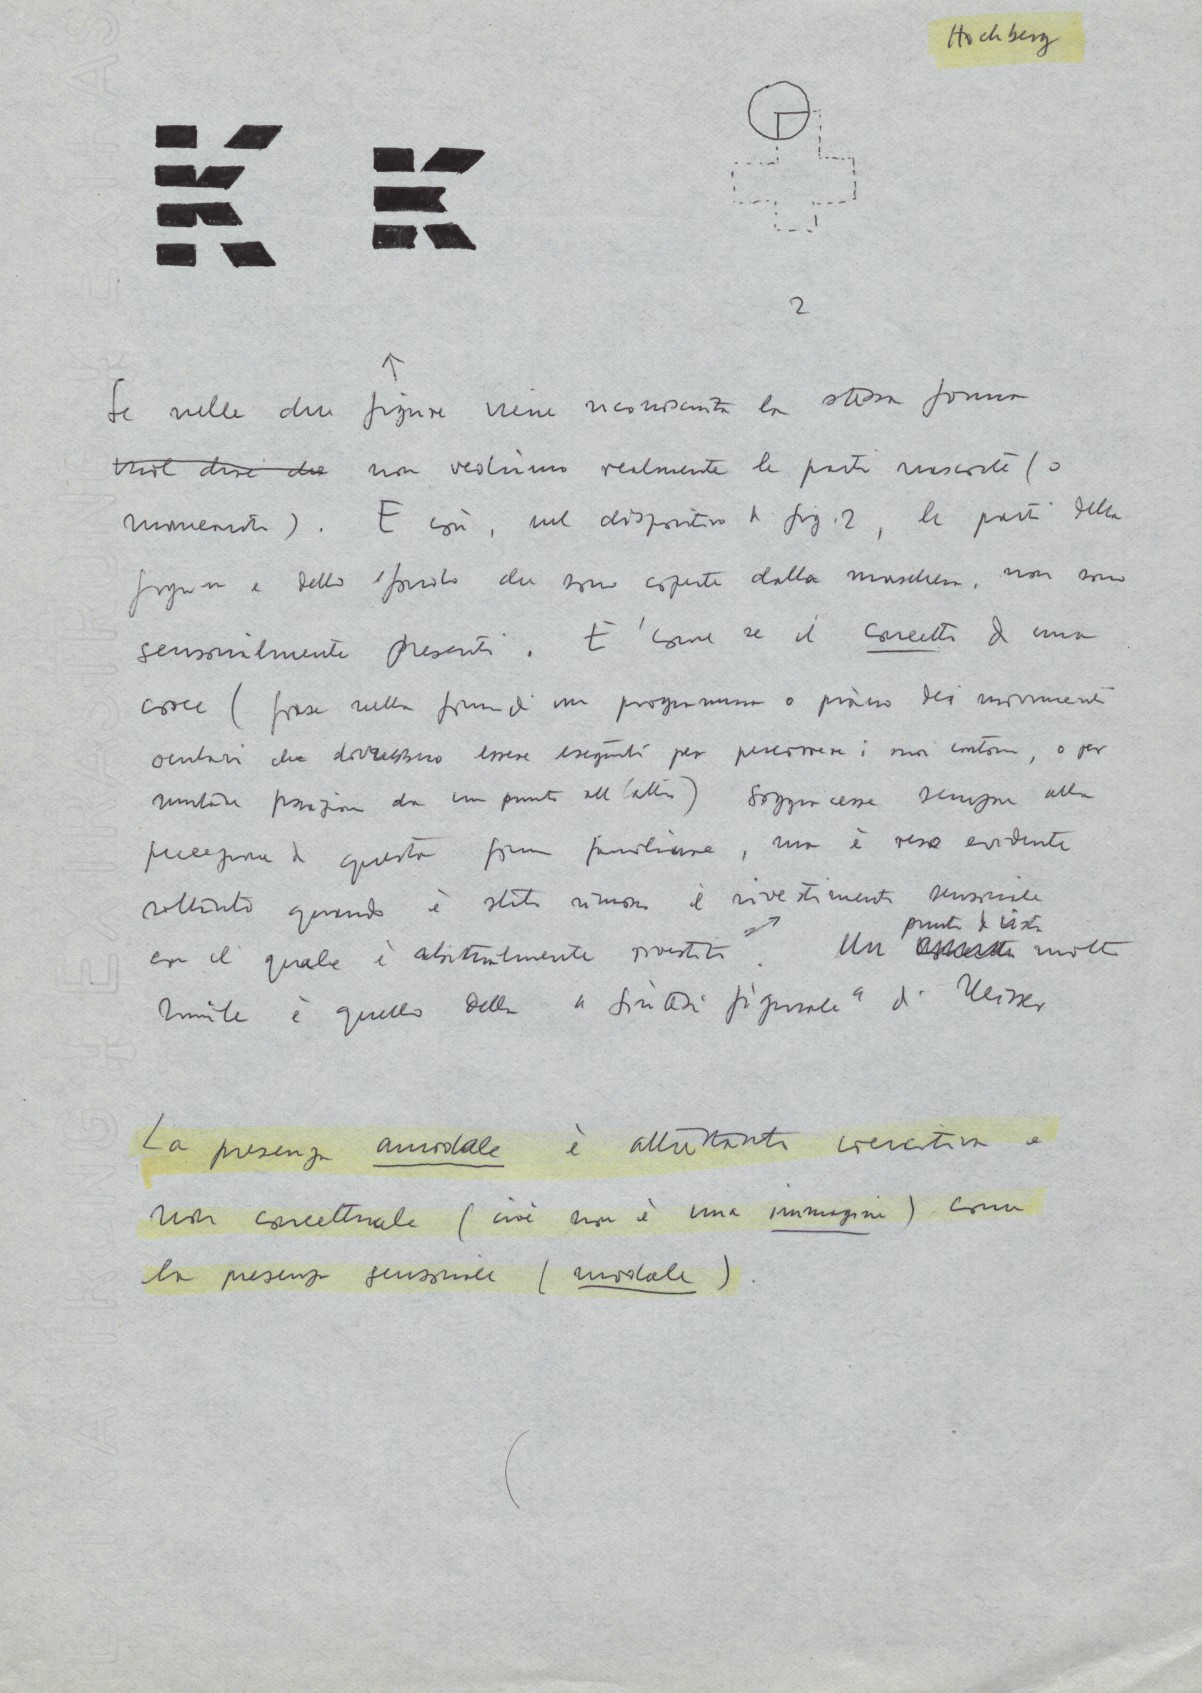 Hochberg
K K
2
Se nelle due figure viene riconosciuta la stessa forma
vuol dire che non vediamo realmente le parti nascoste (o
mancanti). E così, nel dispositivo di fig. 2, le parti della
figura e dello sfondo che sono coperte dalla maschera, non sono
sensorialmente presenti. E' come se il concetto di una
croce (forse nella forma di un programma o piano dei movimenti
oculari che dovrebbero essere eseguiti per percorrere i suoi contorni, o per
mutare posizione da un punto all'altro) soggiacesse sempre alla
percezione di questa forma familiare, ma è reso evidente
soltanto quando è stato rimosso il rivestimento sensoriale
con il quale è abitualmente rivestito". Un punto di vista molto
simile è quello della "sintesi figurale" di Neisser
La presenza amodale è altrettanto coercitiva e
non concettuale (cioè non è una immagine) come
la presenza sensoriale (modale).